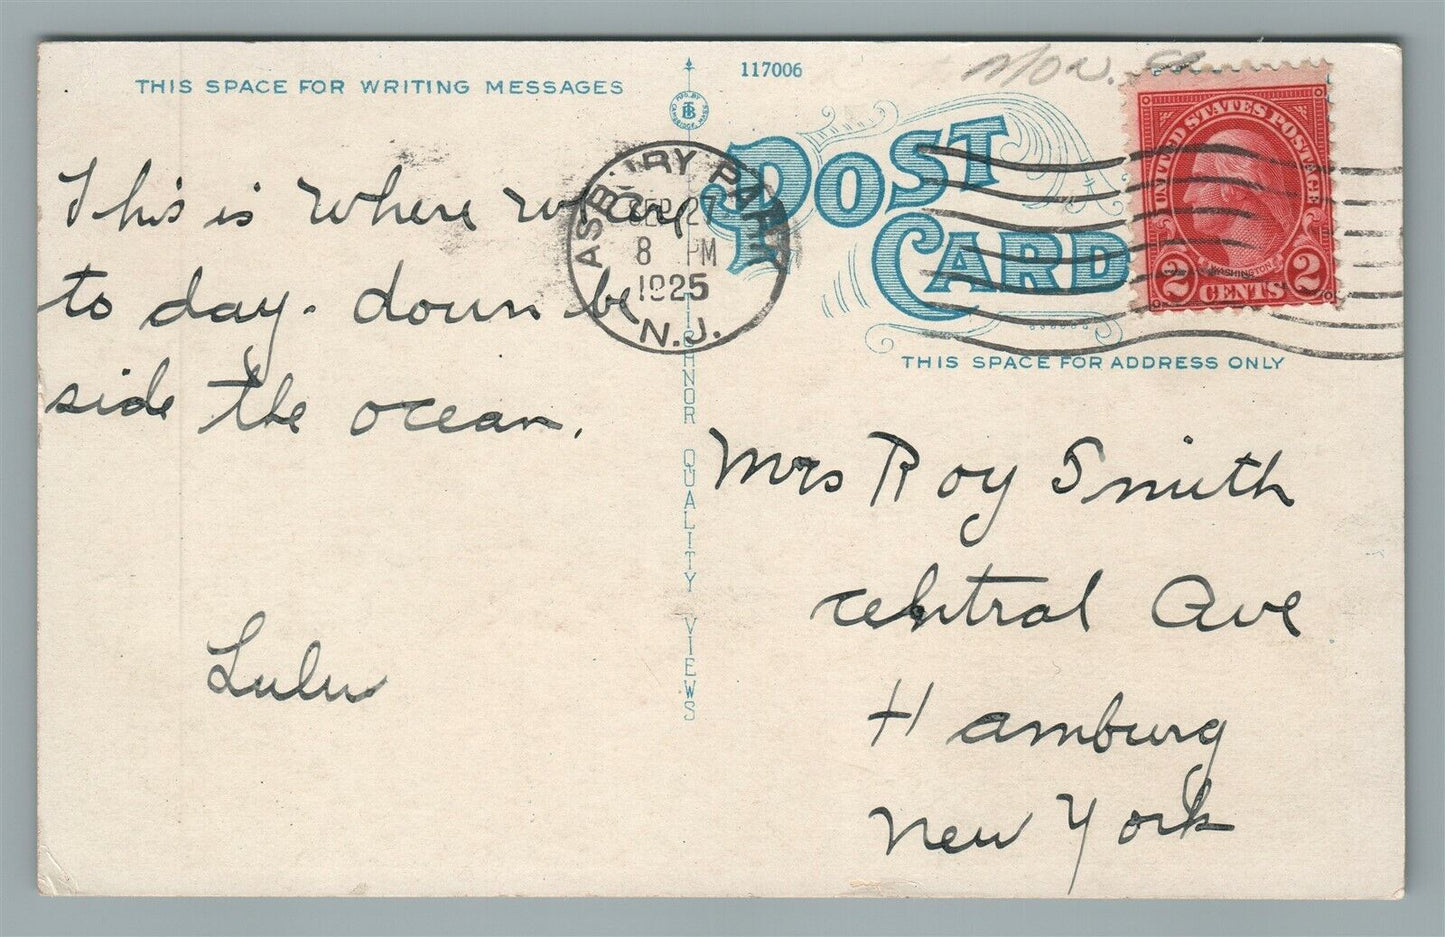 THIS SPACE FOR WRITING MESSAGES
117006
Mon.
POST CARD
UNITED STATES POSTAGE
WASHINGTON
2 CENTS 2
ASBURY PARK
SEP 27
8 PM
1925
N.J.
THIS SPACE FOR ADDRESS ONLY
TICHNOR QUALITY VIEWS
This is where
to day. down be
side the ocean.
Lulu
Mrs Roy Smith
central Ave
Hamburg
New York